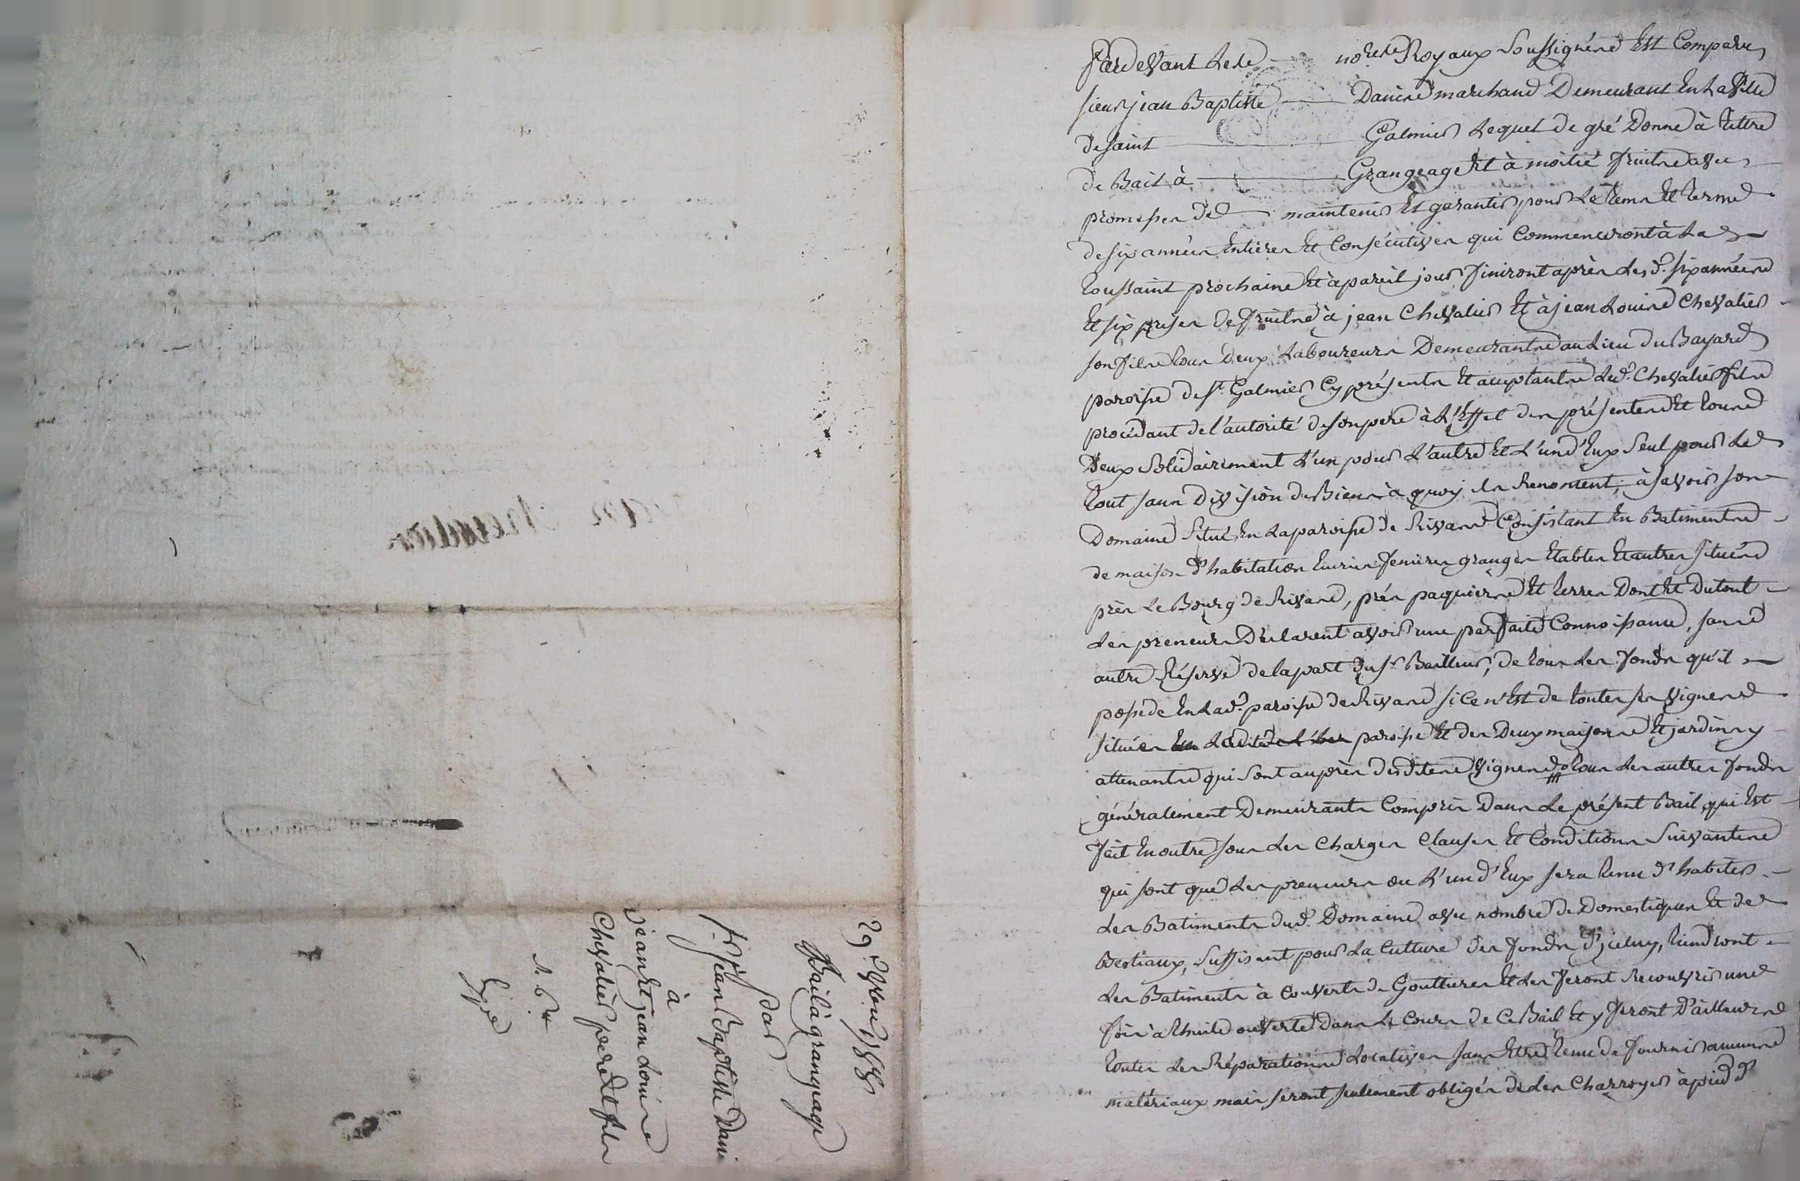 Pardevant Les nores Royaux Soussignés Est Comparu
sieur jean Baptiste Danière marchand Demeurant En La Ville
de saint Galmier Lequel de gré Donne à titre
de Bail à Grangeage Et à moitié fruits avec
promesse de maintenir Et garantir pour Le tems Et terme
de six années Entieres Et Consécutives qui Commenceront à La
toussaint prochaine Et à pareil jour finiront après Lesd. six années
Et six prises de fruits à jean Chevalier Et à jean Louis Chevalier
son fils tous Deux Laboureurs Demeurants au Lieu du Bayard
paroisse de St. Galmier Cy présents Et acceptants Led. Chevalier fils
procédant de l'autorité de son pere à L'Effet des présentes Et tous
Deux Solidairement L'un pour L'autre Et L'un d'Eux Seul pour Le
tout sans Division de Biens à quoy ils Renoncent, à savoir son
Domaine Situé En La paroisse de Rivas Consistant En Batiments
de maison d'habitation Ecuries fenieres granges Etables Et autres situés
près Le Bourg de Rivas, prés paquiers Et terres Dont Et Du tout
Les preneurs Déclarent avoir une parfaite Connoissance, sans
autre Réserve de la part du sr. Bailleur, de tous Les fonds qu'il
possede En Lad. paroisse de Rivas si ce n'Est de toutes ses Vignes
situées En Ladite paroisse Et des Deux maisons Et jardin y
attenants qui sont auprès desdites Vignes tous Les autres fonds
généralement Demeurants Compris Dans Le présent Bail qui Est
fait En outre sous Les Charges Clauses Et Conditions Suivantes
qui sont que Les preneurs ou L'un d'Eux sera tenu d'habiter
Les Batiments dud. Domaine avec nombre de Domestiques Et de
Bestiaux, suffisant pour La Culture des fonds d'jceluy, tiendront
Les Batiments à Couvert de Gouttieres Et Les feront Recouvrir une
fois à thuile ouverte Dans Le Cours de Ce Bail Et y feront D'ailleurs
toutes Les Réparations Locatives sans Etre tenus de fournir aucuns
matériaux mais seront seulement obligés de Les Charroyer à pied d'
Bail à grangeage
par
Sr. jean Baptiste Dani
à
jean Et jean Louis
Chevalier pere Et fils